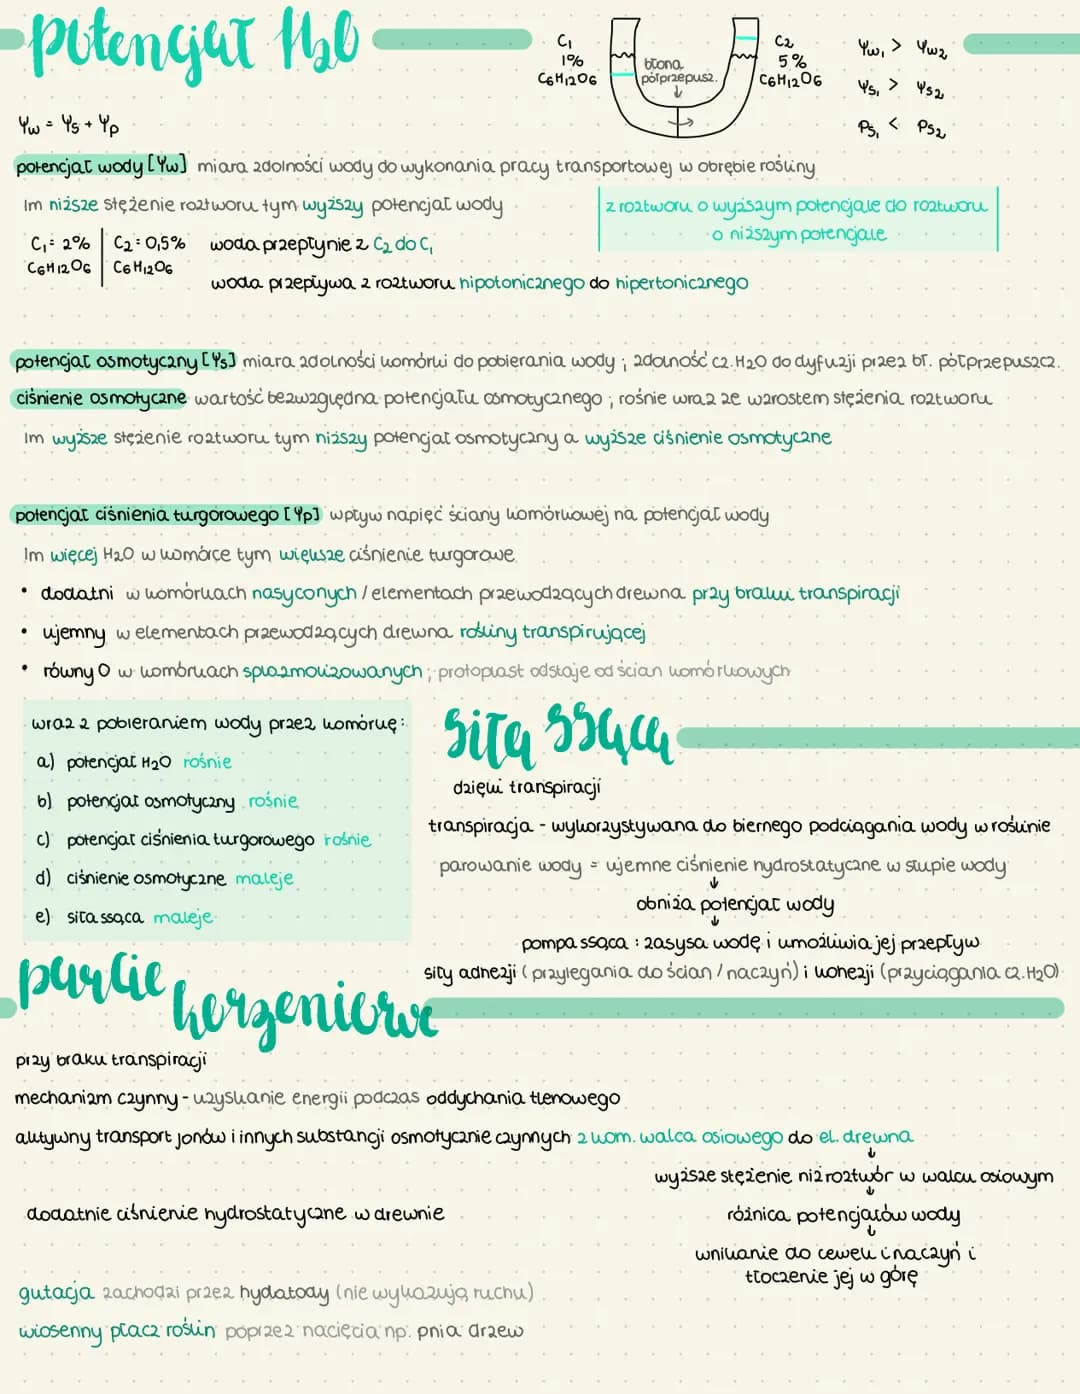 potencjał H₂O
C₁
1%
C₆H₁₂O₆
błona
półprzepusz.
C₂
5%
C₆H₁₂O₆
Ψw₁ > Ψw₂
Ψs₁ > Ψs₂
Ps₁ < Ps₂
Ψw = Ψs + Ψp
potencjał wody [Ψw] miara zdolności wody do wykonania pracy transportowej w obrębie rośliny
Im niższe stężenie roztworu tym wyższy potencjał wody
z roztworu o wyższym potencjale do roztworu
o niższym potencjale
C₁ = 2% | C₂ = 0,5% woda przepłynie z C₂ do C₁
C₆H₁₂O₆ | C₆H₁₂O₆
woda przepływa z roztworu hipotonicznego do hipertonicznego
potencjał osmotyczny [Ψs] miara zdolności komórki do pobierania wody ; zdolność cz. H₂O do dyfuzji przez bł. półprzepuszcz.
ciśnienie osmotyczne wartość bezwzględna potencjału osmotycznego ; rośnie wraz ze wzrostem stężenia roztworu
Im wyższe stężenie roztworu tym niższy potencjał osmotyczny a wyższe ciśnienie osmotyczne
potencjał ciśnienia turgorowego [Ψp] wpływ napięć ściany komórkowej na potencjał wody
Im więcej H₂O w komórce tym większe ciśnienie turgorowe
• dodatni w komórkach nasyconych / elementach przewodzących drewna przy braku transpiracji
• ujemny w elementach przewodzących drewna rośliny transpirującej
• równy 0 w komórkach splazmolizowanych ; protoplast odstaje od ścian komórkowych
wraz z pobieraniem wody przez komórkę:
a) potencjał H₂O rośnie
b) potencjał osmotyczny rośnie
c) potencjał ciśnienia turgorowego rośnie
d) ciśnienie osmotyczne maleje
e) siła ssąca maleje
siła ssąca
dzięki transpiracji
transpiracja - wykorzystywana do biernego podciągania wody w roślinie
parowanie wody = ujemne ciśnienie hydrostatyczne w słupie wody
↓
obniża potencjał wody
↓
pompa ssąca : zasysa wodę i umożliwia jej przepływ
siły adhezji (przylegania do ścian / naczyń) i kohezji (przyciągania cz. H₂O)
parcie korzeniowe
przy braku transpiracji
mechanizm czynny - uzyskanie energii podczas oddychania tlenowego
aktywny transport jonów i innych substancji osmotycznie czynnych z kom. walca osiowego do el. drewna
↓
wyższe stężenie niż roztwór w walcu osiowym
↓
dodatnie ciśnienie hydrostatyczne w drewnie
różnica potencjałów wody
↓
wnikanie do cewek i naczyń i
tłoczenie jej w górę
gutacja zachodzi przez hydatody (nie wykazują ruchu)
wiosenny płacz roślin poprzez nacięcia np. pnia drzew